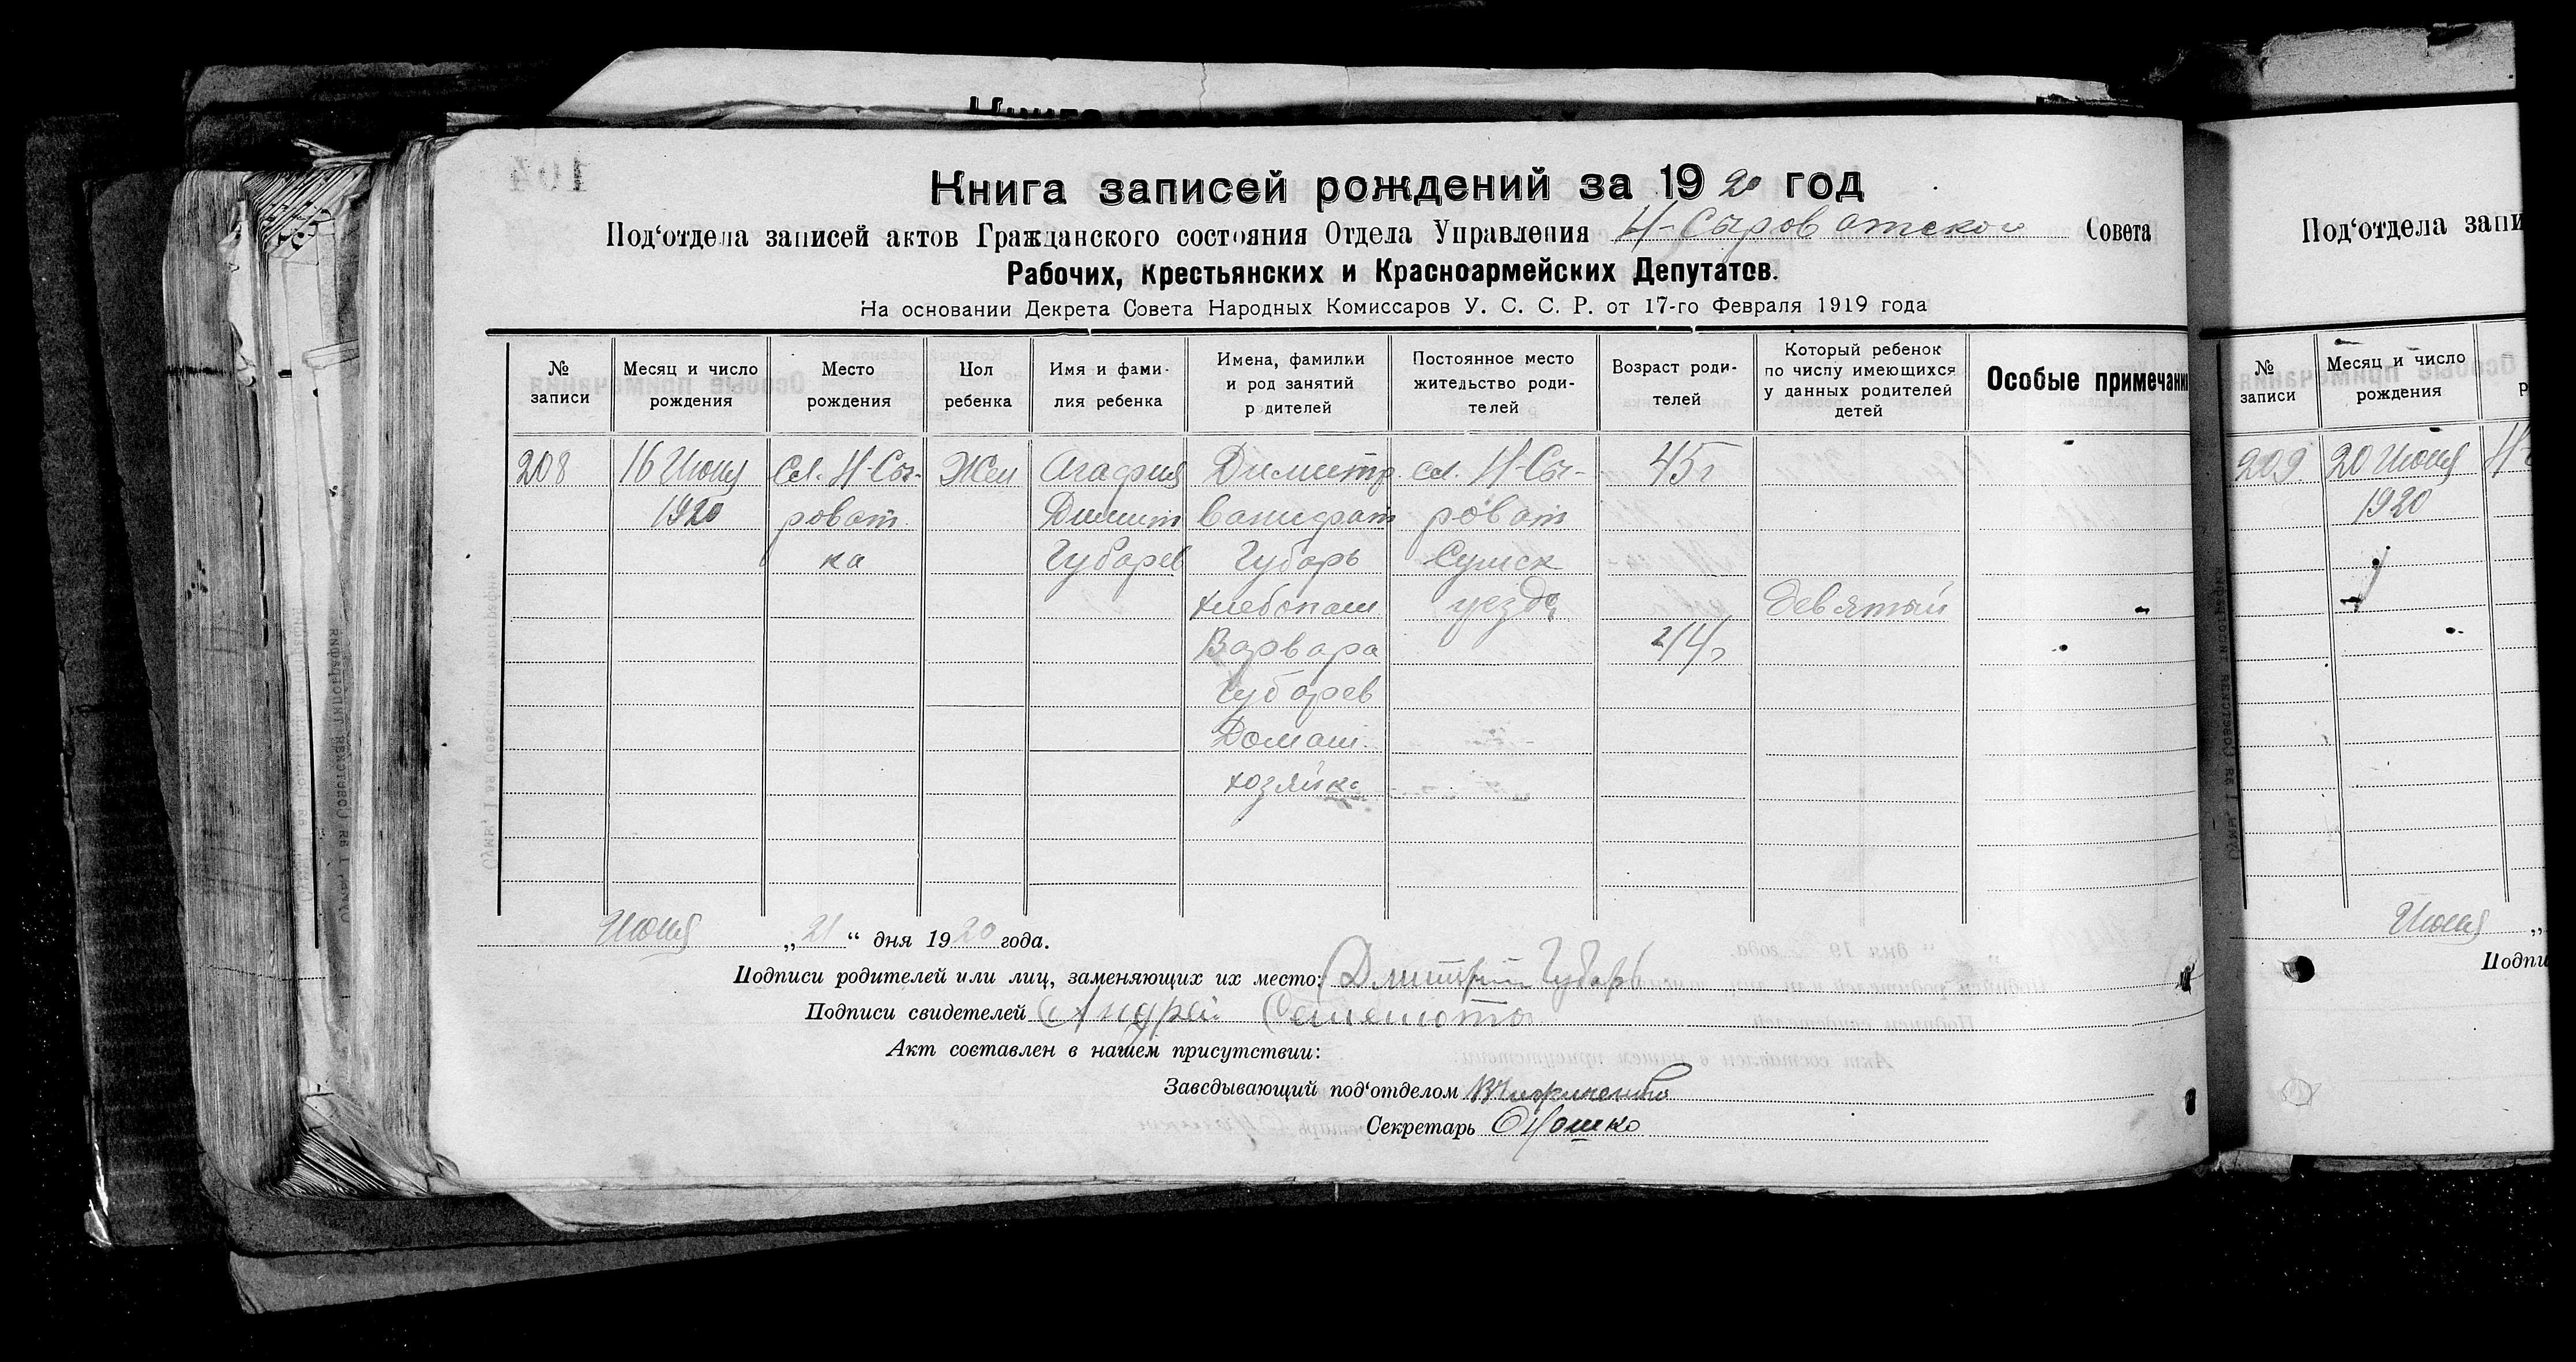 Книга записей рождений за 1920 год
Под‘отдела записей актов Гражданского состояния Отдела Управления Н-Сыроватской Совета
Рабочих, Крестьянских и Красноармейских Депутатов.
На основании Декрета Совета Народных Комиссаров У. С. С. Р. от 17-го Февраля 1919 года
№ записи
Месяц и число рождения
Место рождения
Пол ребенка
Имя и фами-
лия ребенка
Имена, фамилии
и род занятий
родителей
Постоянное место
жительство роди-
телей
Возраст роди-
телей
Который ребенок
по числу имеющихся
у данных родителей
детей
Особые примечани
208 16 Июня Сл. Н-Сы- Жен Агафия Димитр. сл. Н-Сы- 45 г
1920 роват Димит роват
ка Губарев Губарь Сумск
хлебопаш уезда девятый
Варвара 44 г
Губарев
Домаш.
хозяйка
Июня „21“ дня 1920 года.
Подписи родителей или лиц, заменяющих их место: Дмитрий Губарь
Подписи свидетелей Андрей
Акт составлен в нашем присутствии:
Заведывающий под‘отделом
Секретарь
Под‘отдела запи
№ записи
Месяц и число рождения
209 20 Июня
1920
Июня „
Подпи